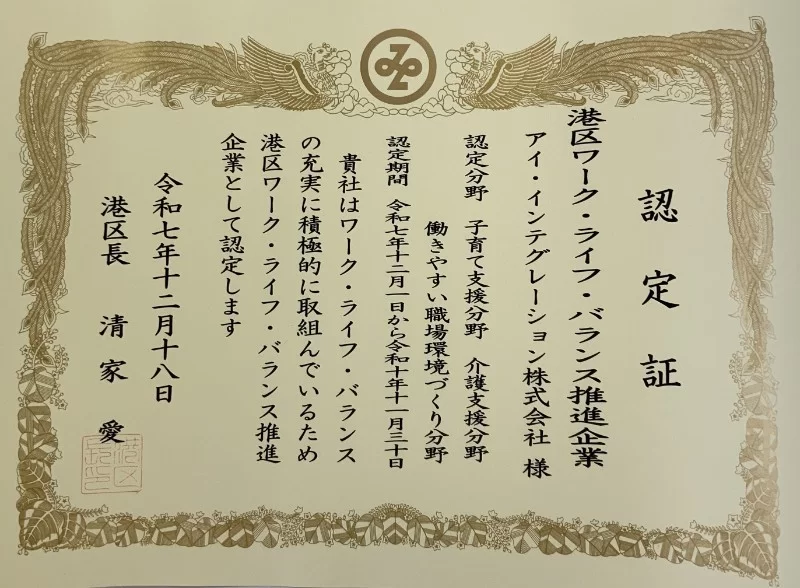 認定証
港区ワーク・ライフ・バランス推進企業
アイ・インテグレーション株式会社 様
認定分野 子育て支援分野 介護支援分野
働きやすい職場環境づくり分野
認定期間 令和七年十二月一日から令和十年十一月三十日
貴社はワーク・ライフ・バランス
の充実に積極的に取組んでいるため
港区ワーク・ライフ・バランス推進
企業として認定します
令和七年十二月十八日
港区長 清家 愛